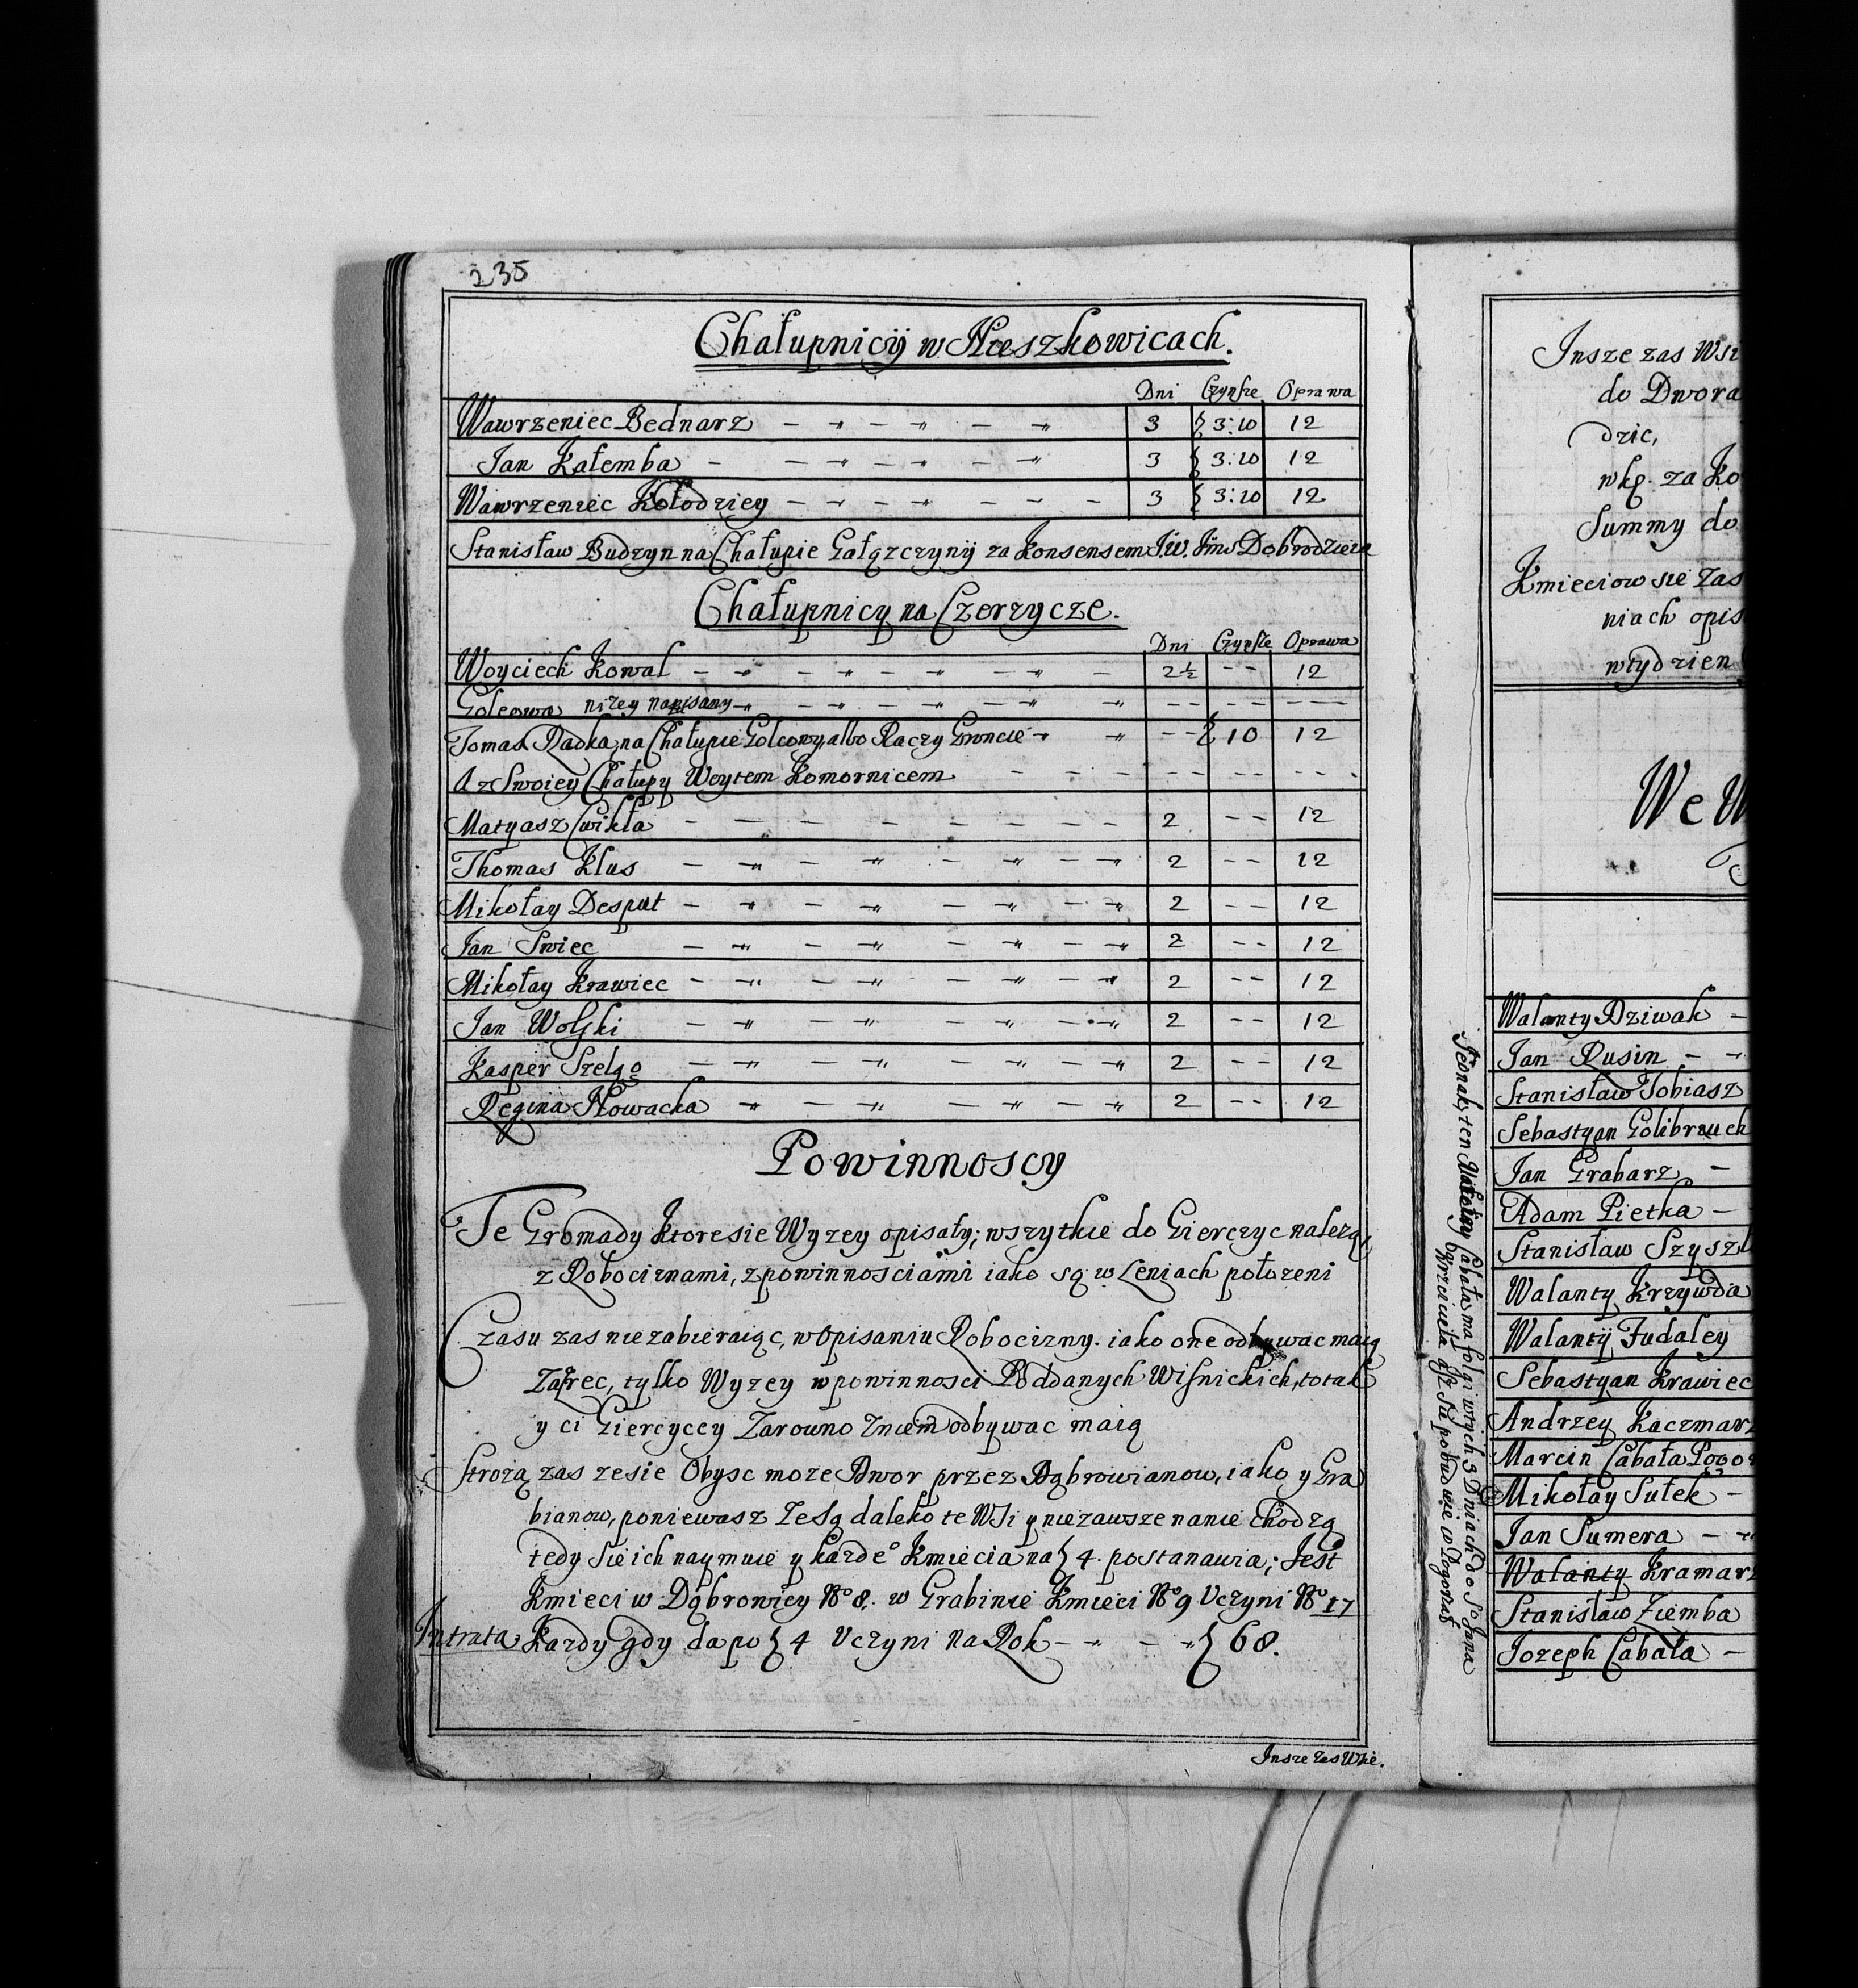 235
Chałupnicÿ w Nieszkowicach.
Dni Czynsze Oprawa
Wawrzeniec Bednarz 3 3:10 12
Jan Kałemba 3 3:10 12
Wawrzeniec Kołodziey 3 3:10 12
Stanisław Budzyn na Chałupie Gałązczynÿ za Konsensem J.W. Jmċ Dobrodzieia
Chałupnicy na Czerzycze.
Dni Czynsze Oprawa
Woyciech Kowal 2½ - - 12
Golcowa niżey napisany - - - - - - -
Tomasz Radka, na Chałupie Golcowy, albo Raczy Groncie - - 10 12
A z Swoiey Chałupy Woytem Komornicem - - - - - - -
Matyasz Cwikła 2 - - 12
Thomas Klus 2 - - 12
Mikołay Desput 2 - - 12
Jan Swiec 2 - - 12
Mikołay Krawiec 2 - - 12
Jan Wolski 2 - - 12
Kasper Szelgo 2 - - 12
Regina Nowacka 2 - - 12
Powinnoscy
Te Gromady ktore sie Wyzey opisały; wszytkie do Gierczyc nalezą,
z Robociznami, z powinnosciami iako są w Leniach położeni
Czasu zas nie zabieraiąc, w Opisaniu Robocizny. iako one odbywac maią
tylko Wyzey w powinnosci Poddanych Wisnickich, to tak
y ci Giercyccy Zarowno Zniem odbywac maią
Strożą zas zesie Obysc moze Dwor przez Dąbrowianow, iako y Gra
bianow, poniewasz Ze Są daleko te WSi y niezawsze nanie Chodzą
tedy Sie ich naymuie y kazdeo Kmiecia na 4. postanawia; Jest
Kmieci w Dąbrowicy No 8. w Grabinie Kmieci No 9 Uczyni No 17
Intrata Kazdy gdy da po 4 Uczyni na Rok 68.
Insze zas Wsie.
Jnsze zas Wsi
do Dwora
dzic,
za Ko
Summy do
Kmieciow sie Zas
niach opis
wtydzien
We W
Walanty Dziwak
Jan Rusin
Stanisław Tobiasz
Sebastyan Golibrauch
Jan Grabarz
Adam Pietka
Stanisław Szysz
Walanty Krzywda
Walantÿ Judaley
Sebastyan Krawiec
Andrzey Kaczmarz
Marcin Cabała Pogor
Mikołay Sułek
Jan Sumera
Walanty Kramarz
Stanisław Ziemba
Jozeph Cabała
Jednak ten Cabała ma folgi wtych 3 Dniach do So Jana